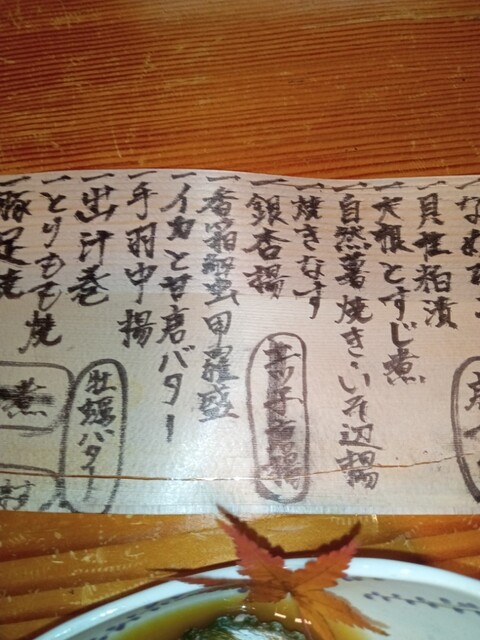 一 貝柱粕漬
一 大根とすじ煮
一 自然薯焼き・いそ辺揚
一 焼きなす
一 銀杏揚
一 香箱蟹甲羅盛
一 イカと甘唐バター
一 手羽中揚
一 出汁巻
一 とりもも焼
一 豚足焼
牡蠣バター
煮